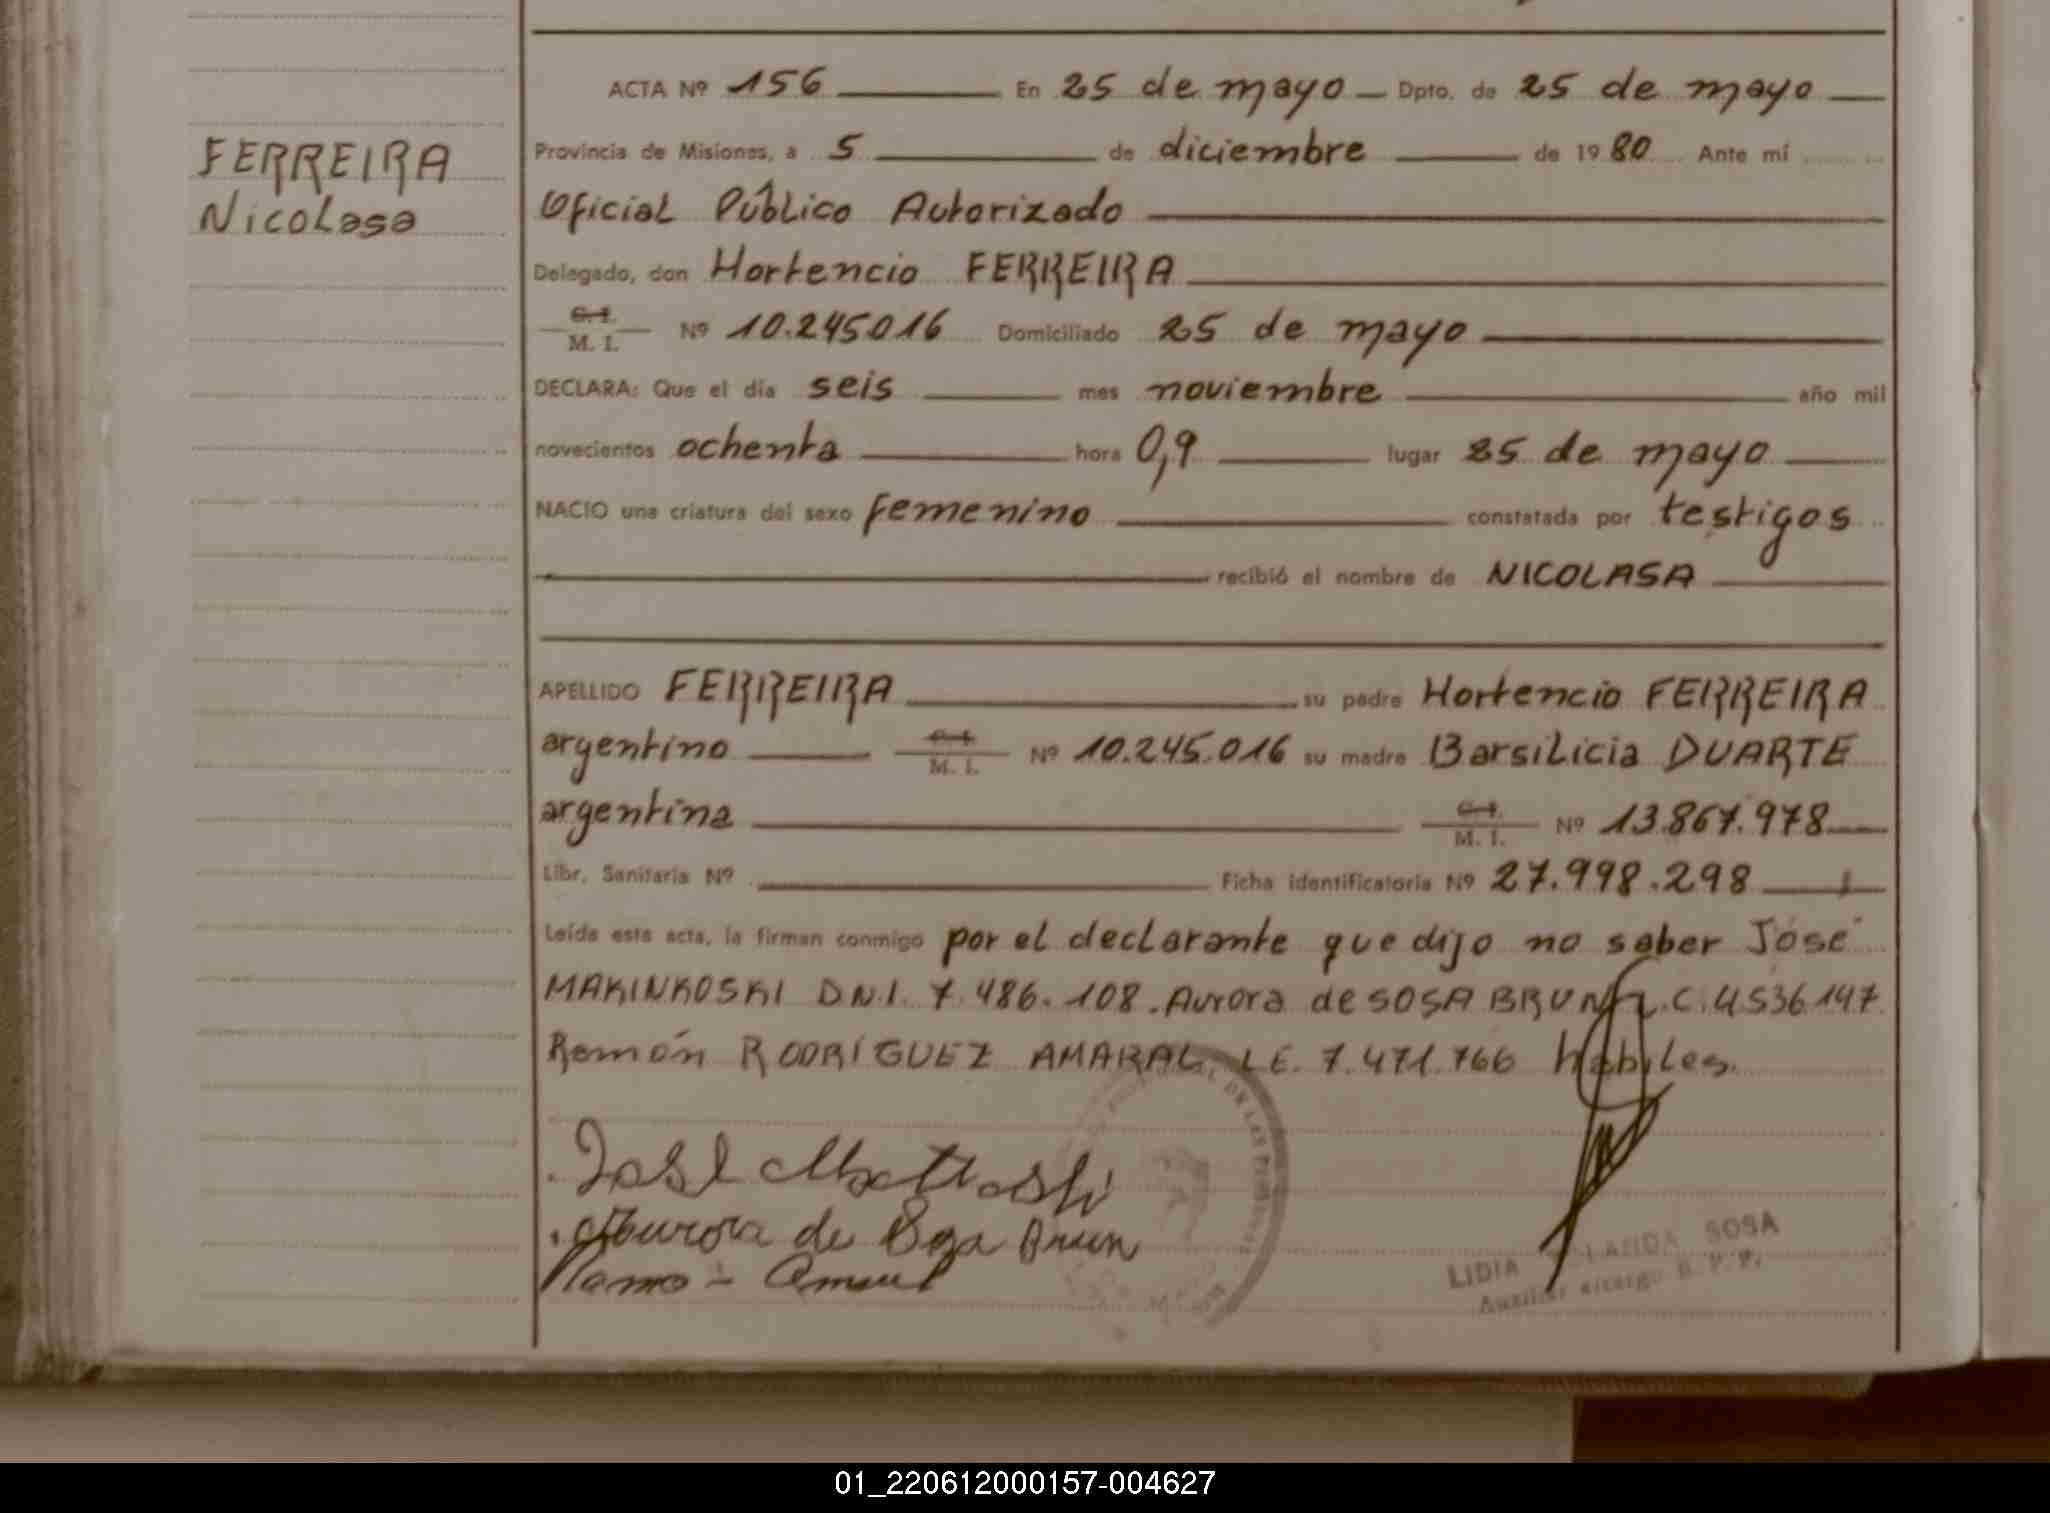 FERREIRA
Nicolasa
ACTA Nº 156 En 25 de mayo Dpto. de 25 de mayo
Provincia de Misiones, a 5 de diciembre de 1980 Ante mí
Oficial Público Autorizado
Delegado, don Hortencio FERREIRA
C. I.
M. I. Nº 10.245.016 Domiciliado 25 de mayo
DECLARA: Que el día seis mes noviembre año mil
novecientos ochenta hora 0,9 lugar 25 de mayo
NACIO una criatura del sexo femenino constatada por testigos
recibió el nombre de NICOLASA
APELLIDO FERREIRA su padre Hortencio FERREIRA
argentino C. I. M. I. Nº 10.245.016 su madre Barsilicia DUARTE
argentina C. I. M. I. Nº 13.867.978
Libr. Sanitaria Nº Ficha identificatoria Nº 27.998.298
Leída esta acta, la firman conmigo por el declarante que dijo no saber José
MAKINKOSKI D.N.I. 7.486.108. Aurora de SOSA BRUN L.C. 4.536.147.
Ramón RODRÍGUEZ AMARAL LE. 7.471.766 hábiles.
José
Aurora de Sosa Brun
LIDIA SOSA
Auxiliar
01_220612000157-004627